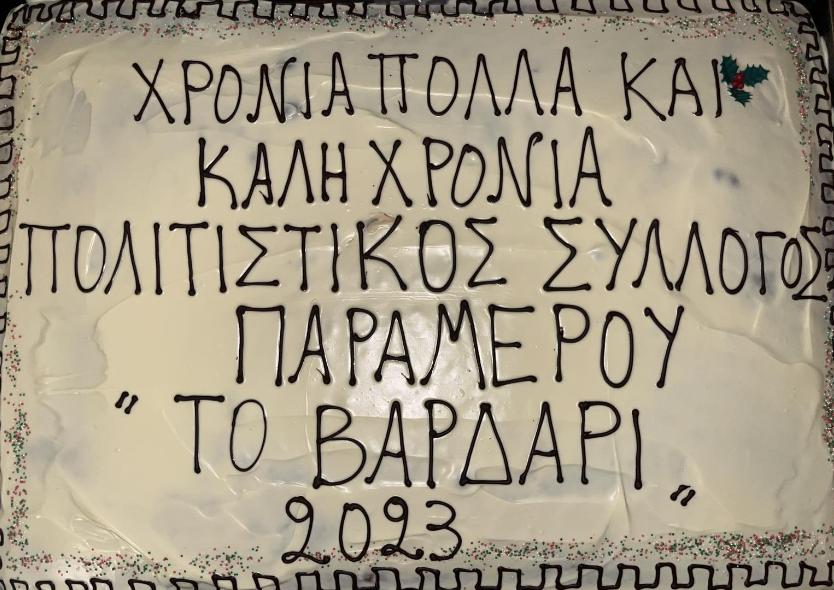 ΧΡΟΝΙΑ ΠΟΛΛΑ ΚΑΙ
ΚΑΛΗ ΧΡΟΝΙΑ
ΠΟΛΙΤΙΣΤΙΚΟΣ ΣΥΛΛΟΓΟΣ
ΠΑΡΑΜΕΡΟΥ
" ΤΟ ΒΑΡΔΑΡΙ "
2023